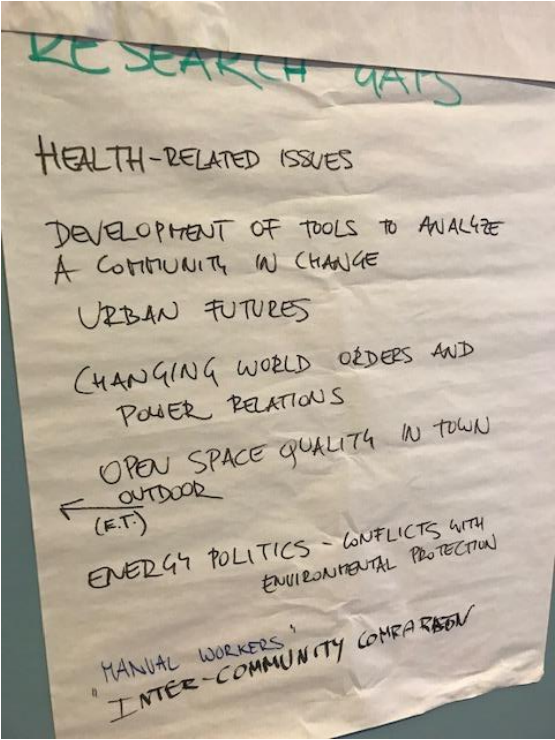 RESEARCH GAPS
HEALTH-RELATED ISSUES
DEVELOPMENT OF TOOLS TO ANALYZE
A COMMUNITY IN CHANGE
URBAN FUTURES
CHANGING WORLD ORDERS AND
POWER RELATIONS
OPEN SPACE QUALITY IN TOWN
OUTDOOR
(E.T.)
ENERGY POLITICS - CONFLICTS WITH
ENVIRONMENTAL PROTECTION
MANUAL WORKERS"
"INTER-COMMUNITY COMPARISON